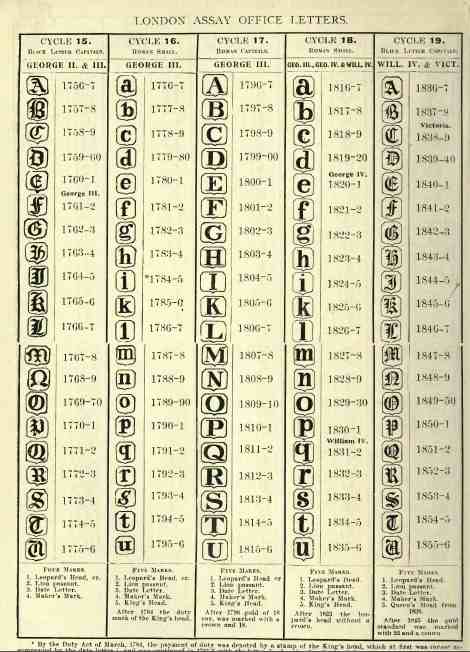 LONDON ASSAY OFFICE LETTERS.
CYCLE 15. CYCLE 16. CYCLE 17. CYCLE 18. CYCLE 19.
BLACK LETTER CAPITALS. ROMAN SMALL. ROMAN CAPITALS. ROMAN SMALL. BLACK LETTER CAPITALS.
GEORGE II. & III. GEORGE III. GEORGE III. GEO. III., GEO. IV. & WILL. IV. WILL. IV. & VICT.
A 1756-7 a 1776-7 A 1796-7 a 1816-7 A 1836-7
B 1757-8 b 1777-8 B 1797-8 b 1817-8 B 1837-8
Victoria.
C 1758-9 c 1778-9 C 1798-9 c 1818-9 C 1838-9
D 1759-60 d 1779-80 D 1799-00 d 1819-20 D 1839-40
George IV.
E 1760-1 e 1780-1 E 1800-1 e 1820-1 E 1840-1
George III.
F 1761-2 f 1781-2 F 1801-2 f 1821-2 F 1841-2
G 1762-3 g 1782-3 G 1802-3 g 1822-3 G 1842-3
H 1763-4 h 1783-4 H 1803-4 h 1823-4 H 1843-4
I 1764-5 i *1784-5 I 1804-5 i 1824-5 I 1844-5
K 1765-6 k 1785-6 K 1805-6 k 1825-6 K 1845-6
L 1766-7 l 1786-7 L 1806-7 l 1826-7 L 1846-7
M 1767-8 m 1787-8 M 1807-8 m 1827-8 M 1847-8
N 1768-9 n 1788-9 N 1808-9 n 1828-9 N 1848-9
O 1769-70 o 1789-90 O 1809-10 o 1829-30 O 1849-50
P 1770-1 p 1790-1 P 1810-1 p 1830-1 P 1850-1
William IV.
Q 1771-2 q 1791-2 Q 1811-2 q 1831-2 Q 1851-2
R 1772-3 r 1792-3 R 1812-3 r 1832-3 R 1852-3
S 1773-4 s 1793-4 S 1813-4 s 1833-4 S 1853-4
T 1774-5 t 1794-5 T 1814-5 t 1834-5 T 1854-5
U 1775-6 u 1795-6 U 1815-6 u 1835-6 U 1855-6
FOUR MARKS. FIVE MARKS. FIVE MARKS. FIVE MARKS. FIVE MARKS.
1. Leopard's Head, cr. 1. Leopard's Head, cr. 1. Leopard's Head cr 1. Leopard's Head. 1. Leopard's Head.
2. Lion passant. 2. Lion passant. 2. Lion passant. 2. Lion passant. 2. Lion passant.
3. Date Letter. 3. Date Letter. 3. Date Letter. 3. Date Letter. 3. Date Letter.
4. Maker's Mark. 4. Maker's Mark. 4. Maker's Mark. 4. Maker's Mark. 4. Maker's Mark.
5. King's Head. 5. King's Head. 5. King's Head. 5. Queen's Head from
After 1784 the duty After 1798 gold of 18 After 1821 the leo-
mark of the King's head. car. was marked with pard's head without a After 1845 the gold
a crown and 18. crown. standard was marked
with 22 and a crown
* By the Duty Act of March, 1784, the payment of duty was denoted by a stamp of the King's head, which at first was